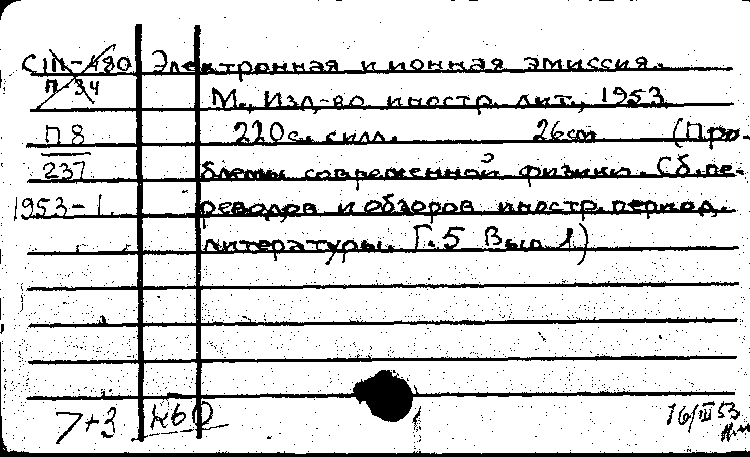 СПП-480 Электронная и ионная эмиссия.
П-34
М., Изд-во иностр. лит., 1953
П8 220с. илл. 26см (Про-
237 блемы современной физики. Сб. пе-
1953-1. реводов и обзоров иностр. период.
литературы. Г.5 Вып 1)
7+3 К60 16/III 53